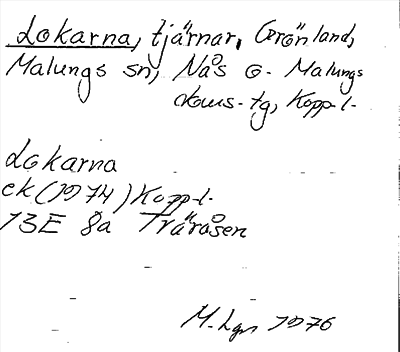 Lokarna, tjärnar, Grönland,
Malungs sn, Nås o. Malungs
doms. tg, Kopp-l.
Lokarna
ek (1974) Kopp-l.
13E 8a Träråsen
M. Lgn 1976